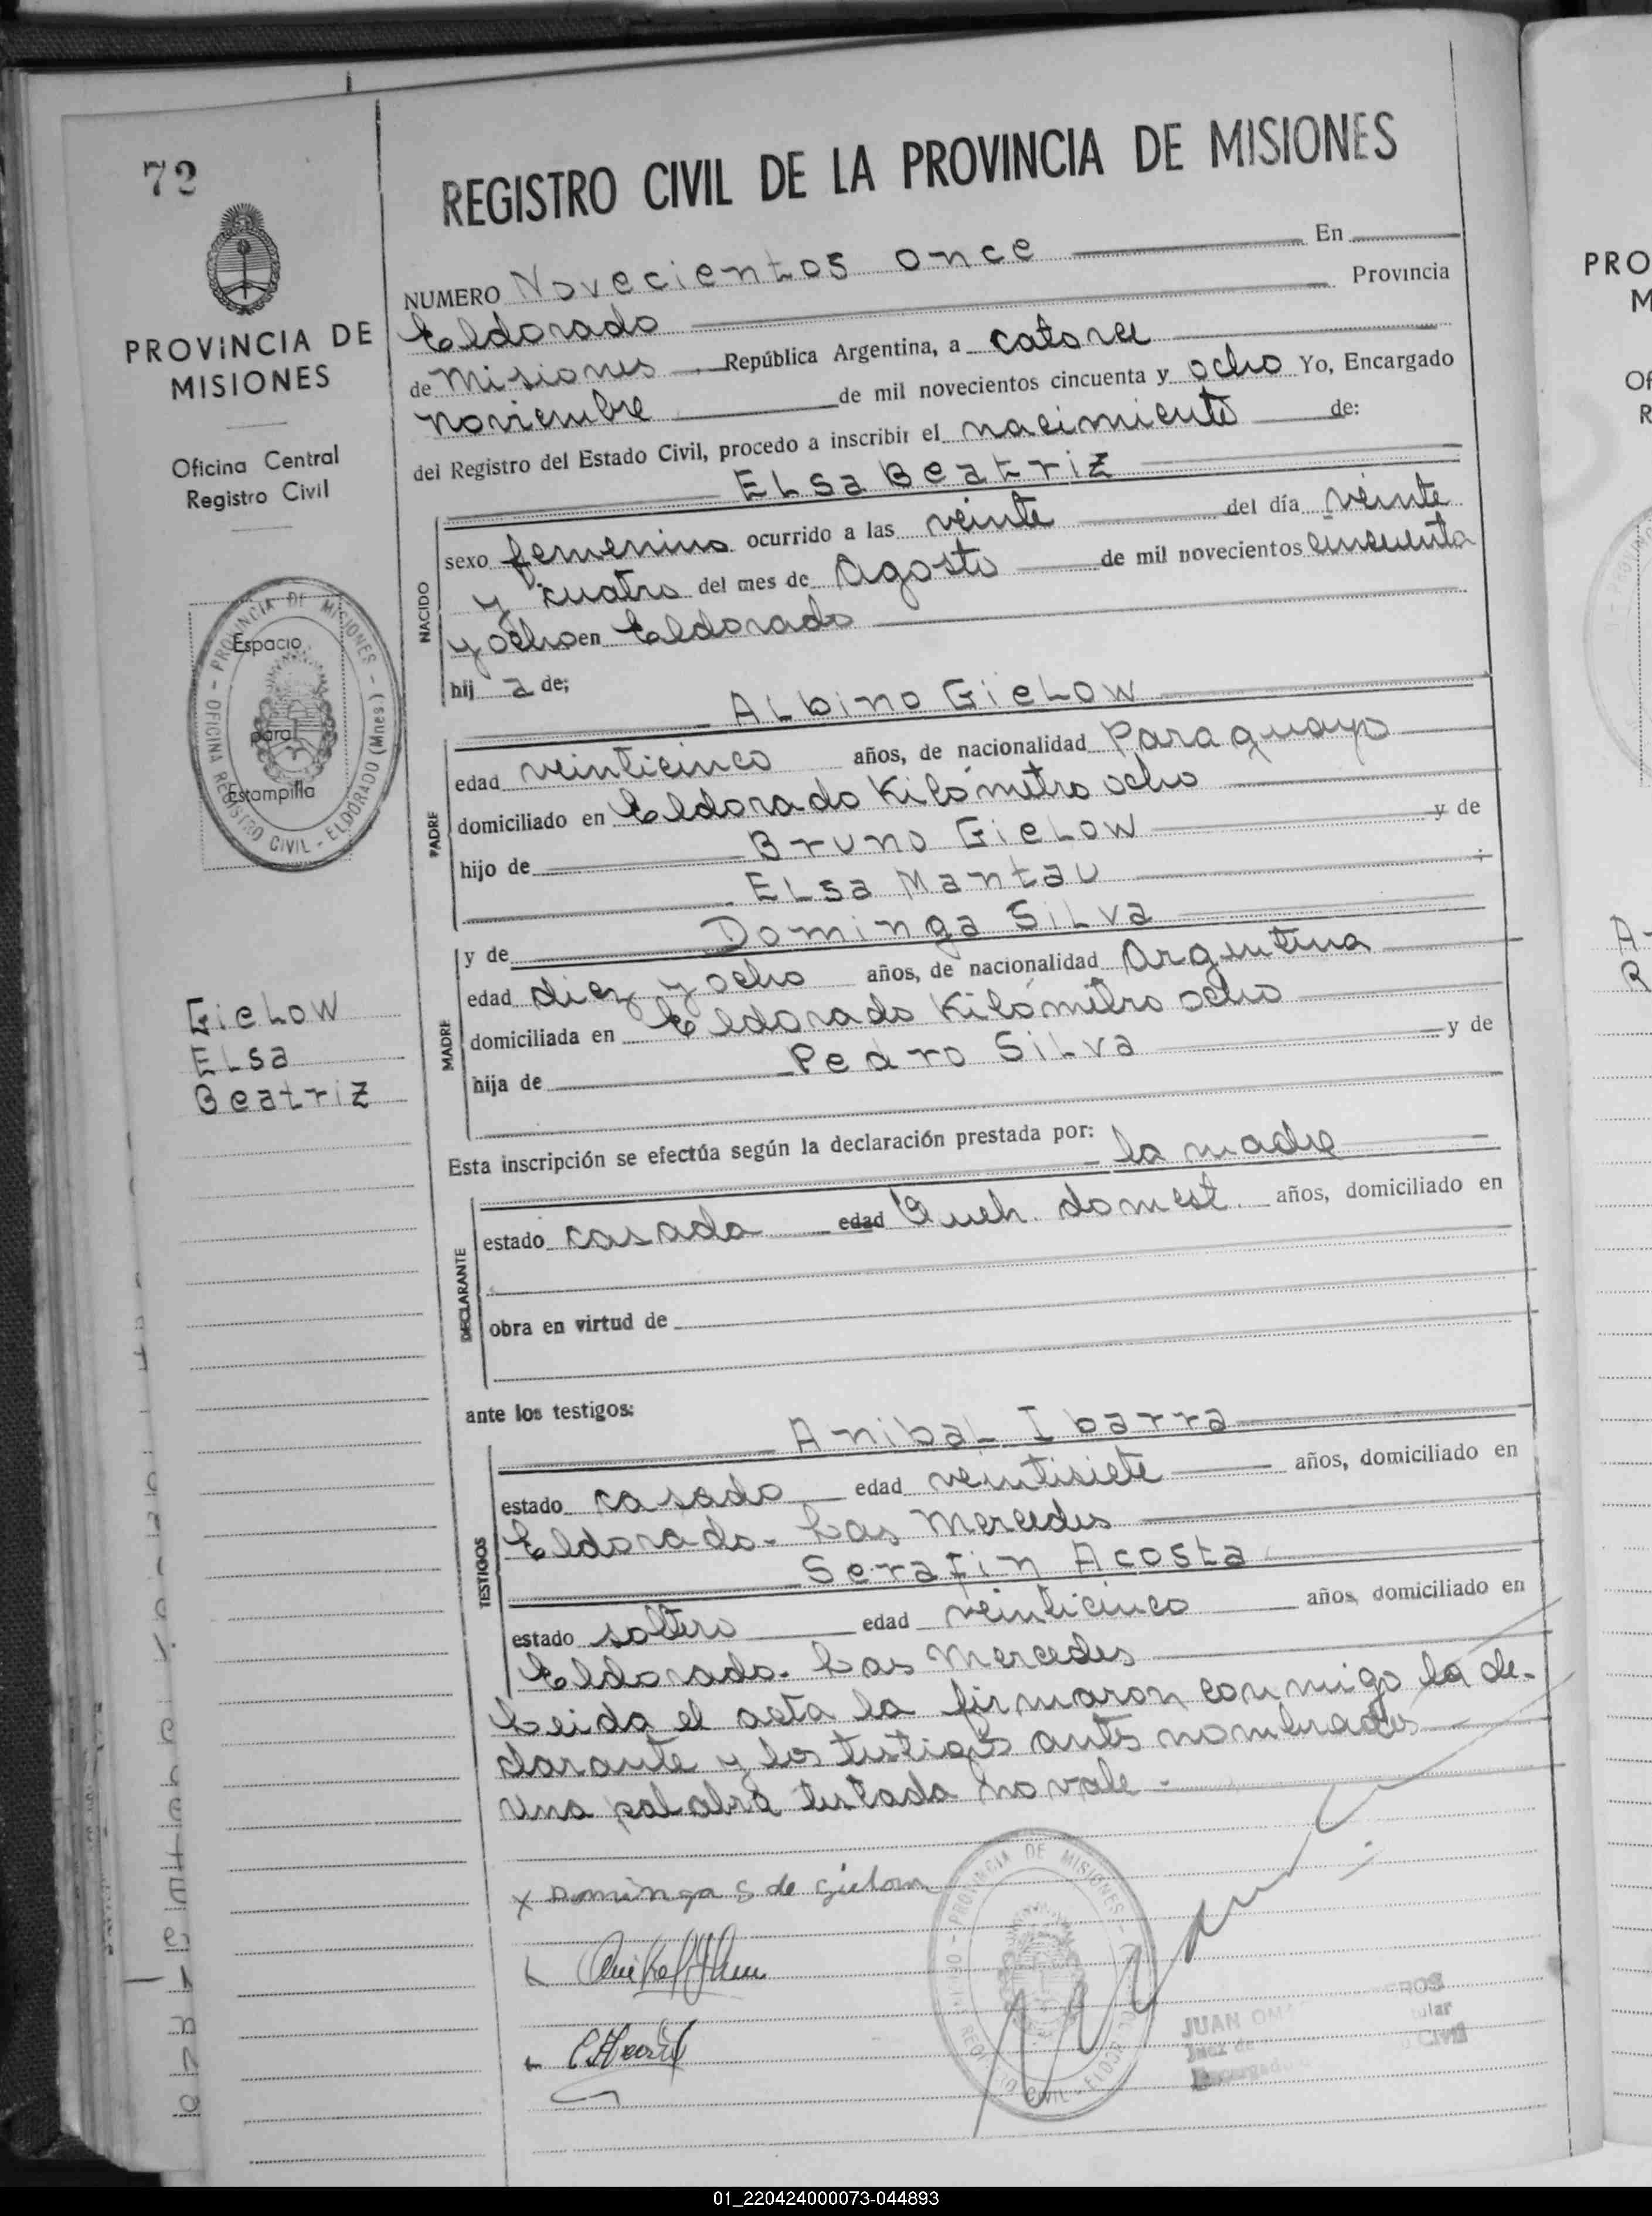 72
PROVINCIA DE
MISIONES
Oficina Central
Registro Civil
PROVINCIA DE MISIONES - OFICINA REGISTRO CIVIL - ELDORADO (Mnes.)
Espacio
para
Estampilla
Gielow
Elsa
Beatriz
REGISTRO CIVIL DE LA PROVINCIA DE MISIONES
NUMERO Novecientos once En
Eldorado Provincia
de Misiones República Argentina, a catorce
noviembre de mil novecientos cincuenta y ocho Yo, Encargado
del Registro del Estado Civil, procedo a inscribir el nacimiento de:
Elsa Beatriz
NACIDO
sexo femenino ocurrido a las veinte del día veinte
y cuatro del mes de Agosto de mil novecientos cincuenta
y ocho en Eldorado
hij a de;
Albino Gielow
PADRE
edad veinticinco años, de nacionalidad Paraguayo
domiciliado en Eldorado Kilómetro ocho
hijo de Bruno Gielow y de
Elsa Mantau
MADRE
y de Dominga Silva
edad diez y ocho años, de nacionalidad Argentina
domiciliada en Eldorado Kilómetro ocho
hija de Pedro Silva y de
Esta inscripción se efectúa según la declaración prestada por: la madre
DECLARANTE
estado casada edad Queh. domest. años, domiciliado en
obra en virtud de
ante los testigos:
Anibal Ibarra
TESTIGOS
estado casado edad veintisiete años, domiciliado en
Eldorado - Las Mercedes
Serafin Acosta
estado soltero edad veinticinco años, domiciliado en
Eldorado - Las Mercedes
Leida el acta la firmaron conmigo la de-
clarante y los testigos antes nombrados
una palabra testada no vale -
x Dominga S de Gielow
PROVINCIA DE MISIONES
CIVIL
JUAN
Civil
PRO
M
Of
R
A-
R
01_220424000073-044893